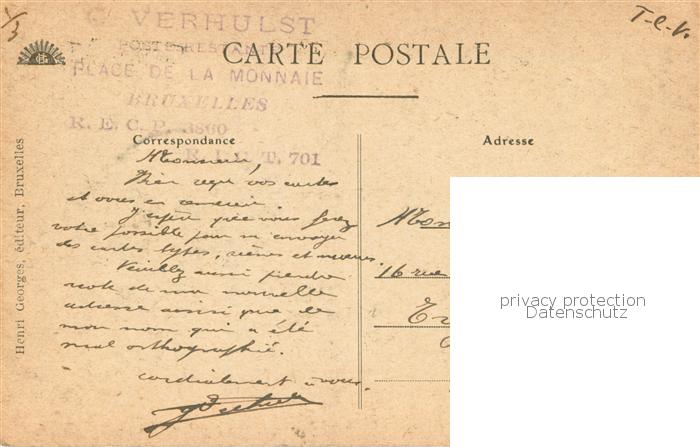 T-C-V.
1/3
G. VERHULST
POSTE RESTANTE
PLACE DE LA MONNAIE
BRUXELLES
R. E. C. P. 3860
T. 701
CARTE POSTALE
Correspondance
Adresse
Henri Georges, éditeur, Bruxelles
Monsieur,
Bien reçu vos cartes
et vous en remercie.
J'espère que vous ferez
votre possible pour m'envoyer
des cartes types, scènes et mœurs.
Veuillez aussi prendre
note de ma nouvelle
adresse ainsi que de
mon nom qui a été
mal orthographié.
cordialement à vous.
16 rue
privacy protection
Datenschutz